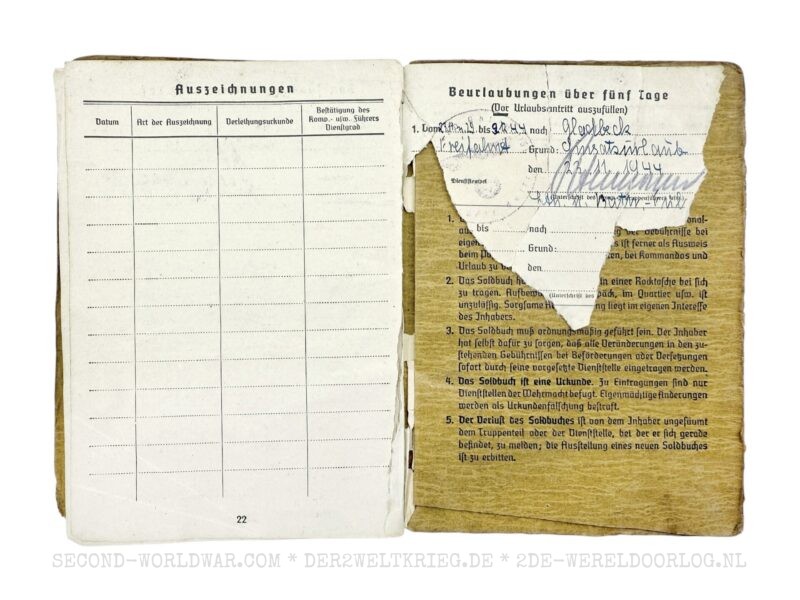 Auszeichnungen
Datum
Art der Auszeichnung
Verleihungsurkunde
Bestätigung des
Komp.- usw. Führers
Dienstgrad
22
Beurlaubungen über fünf Tage
(Vor Urlaubsantritt auszufüllen)
1. Vom bis 44 nach Gladbeck
Grund: Einsatzurlaub
den 23.11.1944
Dienststempel
bis nach
Grund:
den
(Unterschrift des
1.
der Gebührnisse bei
ist ferner als Ausweis
beim bei Kommandos und
Urlaub zu
2. Das Soldbuch in einer Rocktasche bei sich
zu tragen. im Quartier usw. ist
unzulässig. Sorgsame liegt im eigenen Interesse
des Inhabers.
3. Das Soldbuch muß ordnungsmäßig geführt sein. Der Inhaber
hat selbst dafür zu sorgen, daß alle Veränderungen in den zu-
stehenden Gebührnissen bei Beförderungen oder Versetzungen
sofort durch seine vorgesetzte Dienststelle eingetragen werden.
4. Das Soldbuch ist eine Urkunde. Zu Eintragungen sind nur
Dienststellen der Wehrmacht befugt. Eigenmächtige Änderungen
werden als Urkundenfälschung bestraft.
5. Der Verlust des Soldbuches ist von dem Inhaber ungesäumt
dem Truppenteil oder der Dienststelle, bei der er sich gerade
befindet, zu melden; die Ausstellung eines neuen Soldbuches
ist zu erbitten.
SECOND-WORLDWAR.COM * DER2WELTKRIEG.DE * 2DE-WERELDOORLOG.NL